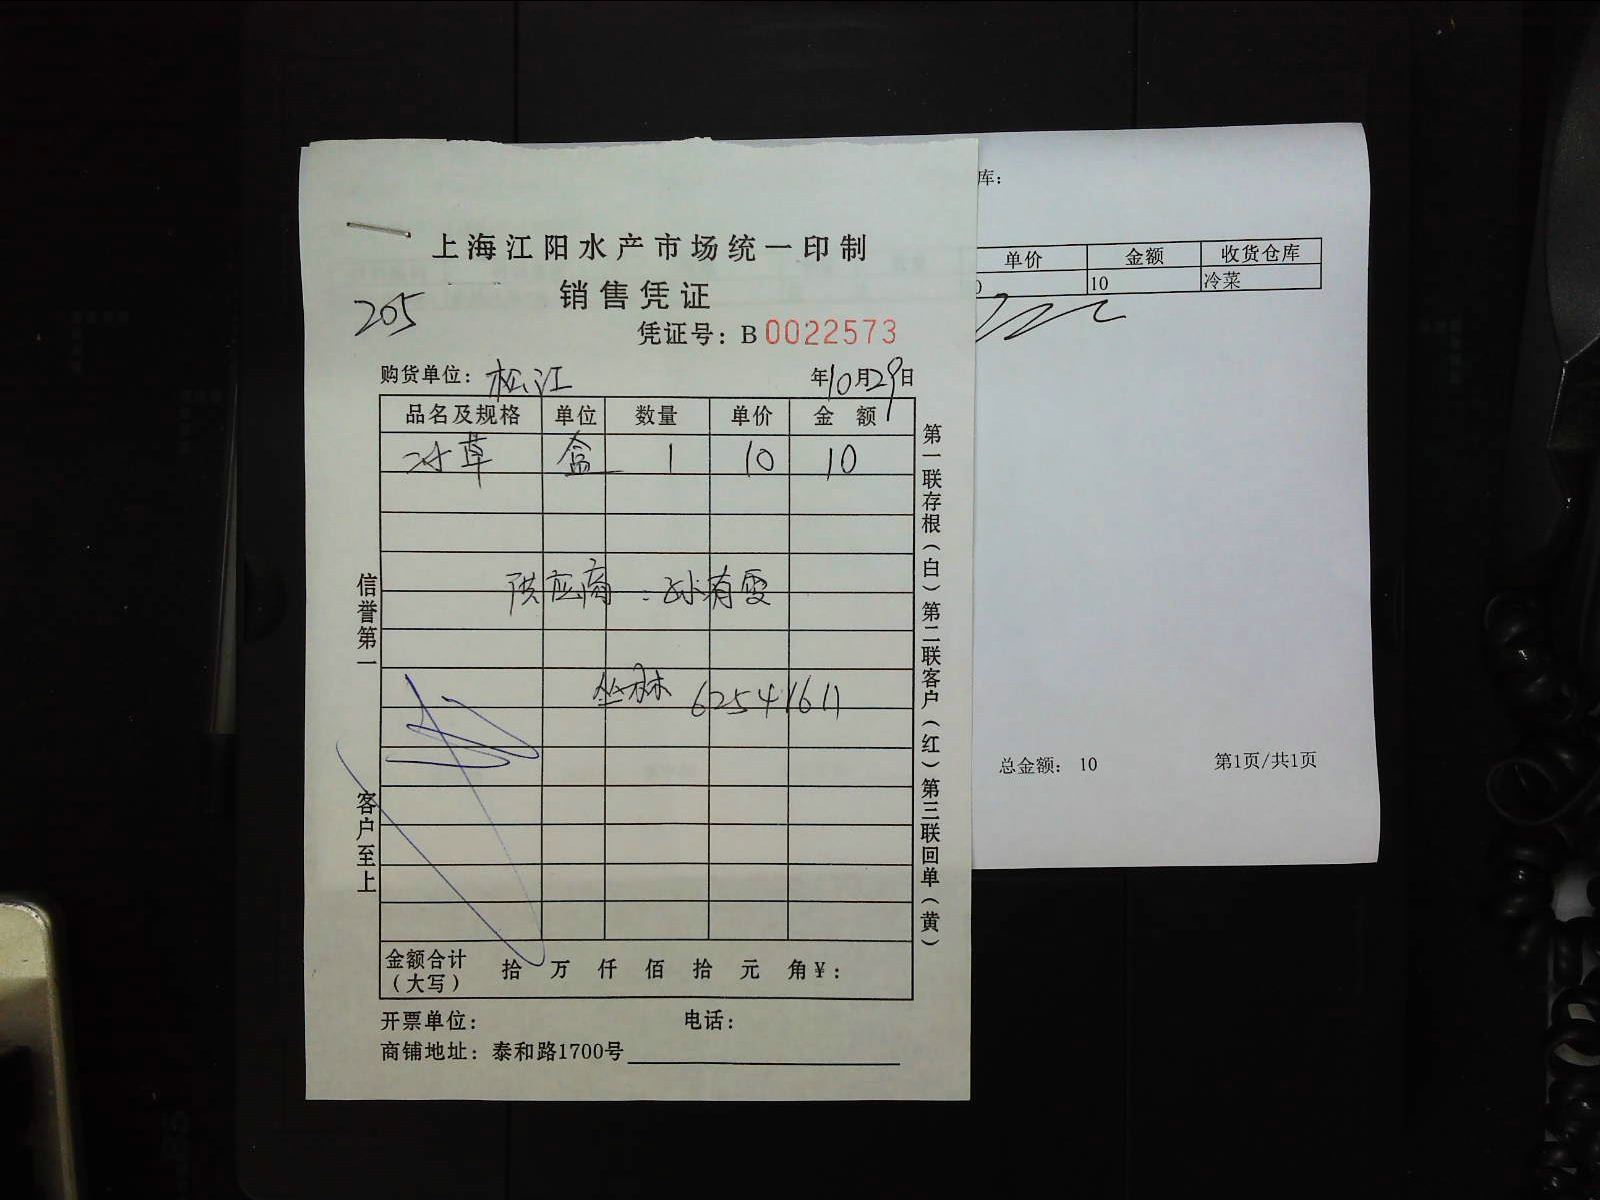 上海江阳水产市场统一印制
销售凭证
205
凭证号：B 0022573
购货单位：松江 年10月29日
品名及规格 单位 数量 单价 金额
冰草 盒 1 10 10
供应商：孙有雯
丛林 62541611
信誉第一 客户至上
第一联存根（白）第二联客户（红）第三联回单（黄）
金额合计（大写） 拾 万 仟 佰 拾 元 角 ¥：
开票单位： 电话：
商铺地址：泰和路1700号
库：
单价 金额 收货仓库
10 冷菜
总金额： 10 第1页/共1页